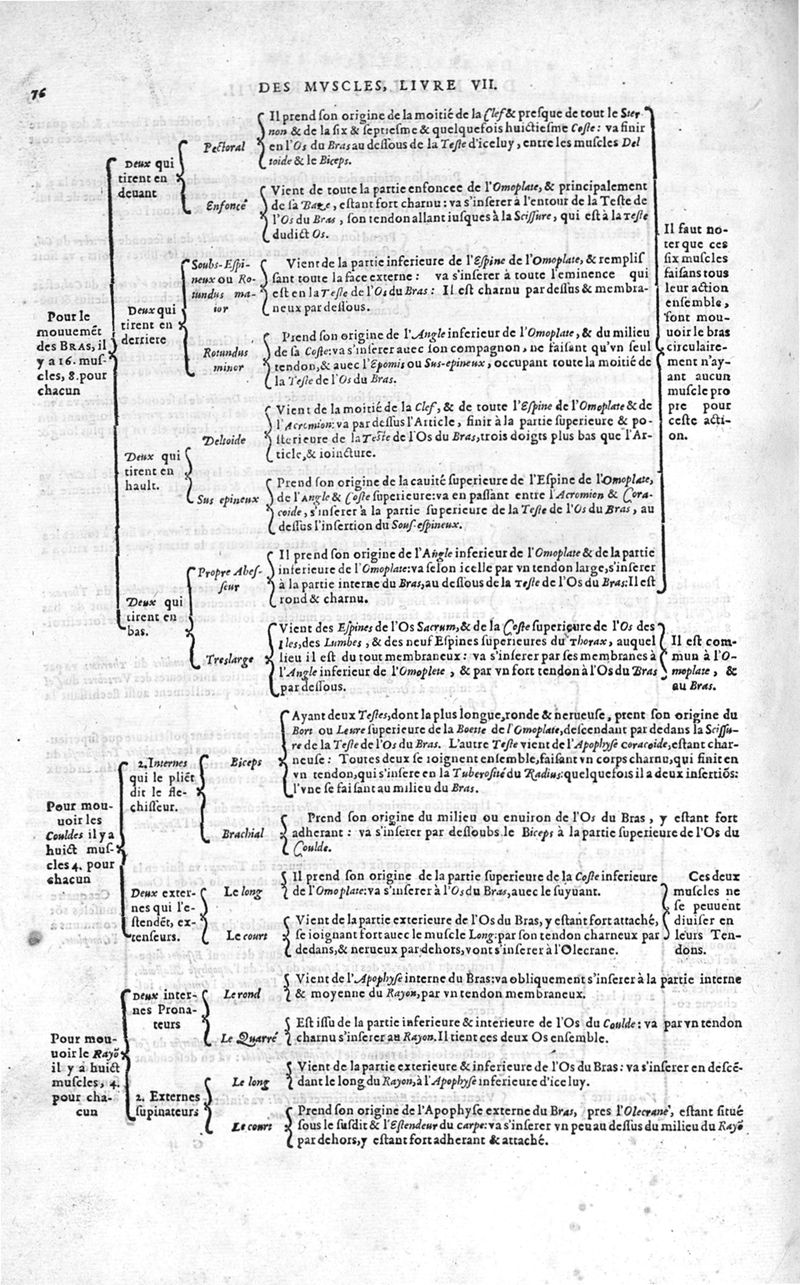 76
DES MVSCLES, LIVRE VII.
Pour le
mouuemẽt
des BRAS, il
y a 16. mus-
cles, 8. pour
chacun
Deux qui
tirent en
deuant
Pectoral
Il prend ſon origine de la moitié de la Clef & presque de tout le Ster
non & de la six & septiesme & quelquefois huictiesme Coste: va finir
en l'Os du Bras au dessous de la Teste d'iceluy, entre les muscles Del
toide & le Biceps.
Enfoncé
Vient de toute la partie enfoncee de l'Omoplate, & principalement
de sa Baze, estant fort charnu: va s'inserer à l'entour de la Teste de
l'Os du Bras, son tendon allant iusques à la Scissure, qui est à la Teste
dudict Os.
Deux qui
tirent en
derriere
Soubs-Espi-
neux ou Ro-
tundus ma-
ior
Vient de la partie inferieure de l'Espine de l'Omoplate, & remplis
sant toute la face externe: va s'inserer à toute l'eminence qui
est en la Teste de l'Os du Bras: Il est charnu par dessus & membra-
neux par dessous.
Rotundus
minor
Prend son origine de l'Angle inferieur de l'Omoplate, & du milieu
de sa Coste: va s'inserer auec son compagnon, ne faisant qu'vn seul
tendon, & auec l'Epomis ou Sus-epineux, occupant toute la moitié de
la Teste de l'Os du Bras.
Deux qui
tirent en
hault.
Deltoide
Vient de la moitié de la Clef, & de toute l'Espine de l'Omoplate & de
l'Acromion: va par dessus l'Article, finir à la partie superieure & po-
sterieure de la Teste de l'Os du Bras, trois doigts plus bas que l'Ar-
ticle, & ioincture.
Sus epineux
Prend son origine de la cauité superieure de l'Espine de l'Omoplate,
de l'Angle & Coste superieure: va en passant entre l'Acromion & Cora-
coide, s'inserer à la partie superieure de la Teste de l'Os du Bras, au
dessus l'insertion du Sous-espineux.
Deux qui
tirent en
bas.
Propre Abes-
seur
Il prend son origine de l'Angle inferieur de l'Omoplate & de la partie
inferieure de l'Omoplate: va selon icelle par vn tendon large, s'inserer
à la partie interne du Bras, au dessous de la Teste de l'Os du Bras: Il est
rond & charnu.
Treslarge
Vient des Espines de l'Os Sacrum, & de la Coste superieure de l'Os des
Iles, des Lumbes, & des neuf Espines superieures du Thorax, auquel
lieu il est du tout membraneux: va s'inserer par ses membranes à
l'Angle inferieur de l'Omoplete, & par vn fort tendon à l'Os du Bras
par dessous.
Il est com-
mun à l'O-
moplate, &
au Bras.
Il faut no-
ter que ces
six muscles
faisans tous
leur action
ensemble,
font mou-
uoir le bras
circulaire-
ment n'ay-
ant aucun
muscle pro
pre pour
ceste acti-
on.
Pour mou-
uoir les
Couldes il y a
huict mus-
cles 4. pour
chacun
2. Internes
qui le pliẽt
dit le fle-
chisseur.
Biceps
Ayant deux Testes, dont la plus longue, ronde & nerueuse, prent son origine du
Bort ou Leure superieure de la Boette de l'Omoplate, descendant par dedans la Scissu-
re de la Teste de l'Os du Bras. L'autre Teste vient de l'Apophyse coracoide, estant char-
neuse: Toutes deux se ioignent ensemble, faisant vn corps charnu, qui finit en
vn tendon, qui s'insere en la Tuberosité du Radius: quelquefois il a deux insertiõs:
l'vne se faisant au milieu du Bras.
Brachial
Prend son origine du milieu ou enuiron de l'Os du Bras, y estant fort
adherant: va s'inserer par dessoubs le Biceps à la partie superieure de l'Os du
Coulde.
Deux exter-
nes qui l'e-
stendẽt, ex-
tenseurs.
Le long
Il prend son origine de la partie superieure de la Coste inferieure
de l'Omoplate: va s'inserer à l'Os du Bras, auec le suyuant.
Le court
Vient de la partie exterieure de l'Os du Bras, y estant fort attaché,
se ioignant fort auec le muscle Long: par son tendon charneux par
dedans, & nerueux par dehors, vont s'inserer à l'Olecrane.
Ces deux
muscles ne
se peuuent
diuiser en
leurs Ten-
dons.
Pour mou-
uoir le Rayõ
il y a huict
muscles, 4.
pour cha-
cun
Deux inter-
nes Prona-
teurs
Le rond
Vient de l'Apophyse interne du Bras: va obliquement s'inserer à la partie interne
& moyenne du Rayon, par vn tendon membraneux.
Le Quarré
Est issu de la partie inferieure & interieure de l'Os du Coulde: va par vn tendon
charnu s'inserer au Rayon. Il tient ces deux Os ensemble.
2. Externes
supinateurs
Le long
Vient de la partie exterieure & inferieure de l'Os du Bras: va s'inserer en descẽ-
dant le long du Rayon, à l'Apophyse inferieure d'iceluy.
Le court
Prend son origine de l'Apophyse externe du Bras, pres l'Olecrane, estant situé
sous le susdit & l'Estendeur du carpe: va s'inserer vn peu au dessus du milieu du Rayõ
par dehors, y estant fort adherant & attaché.